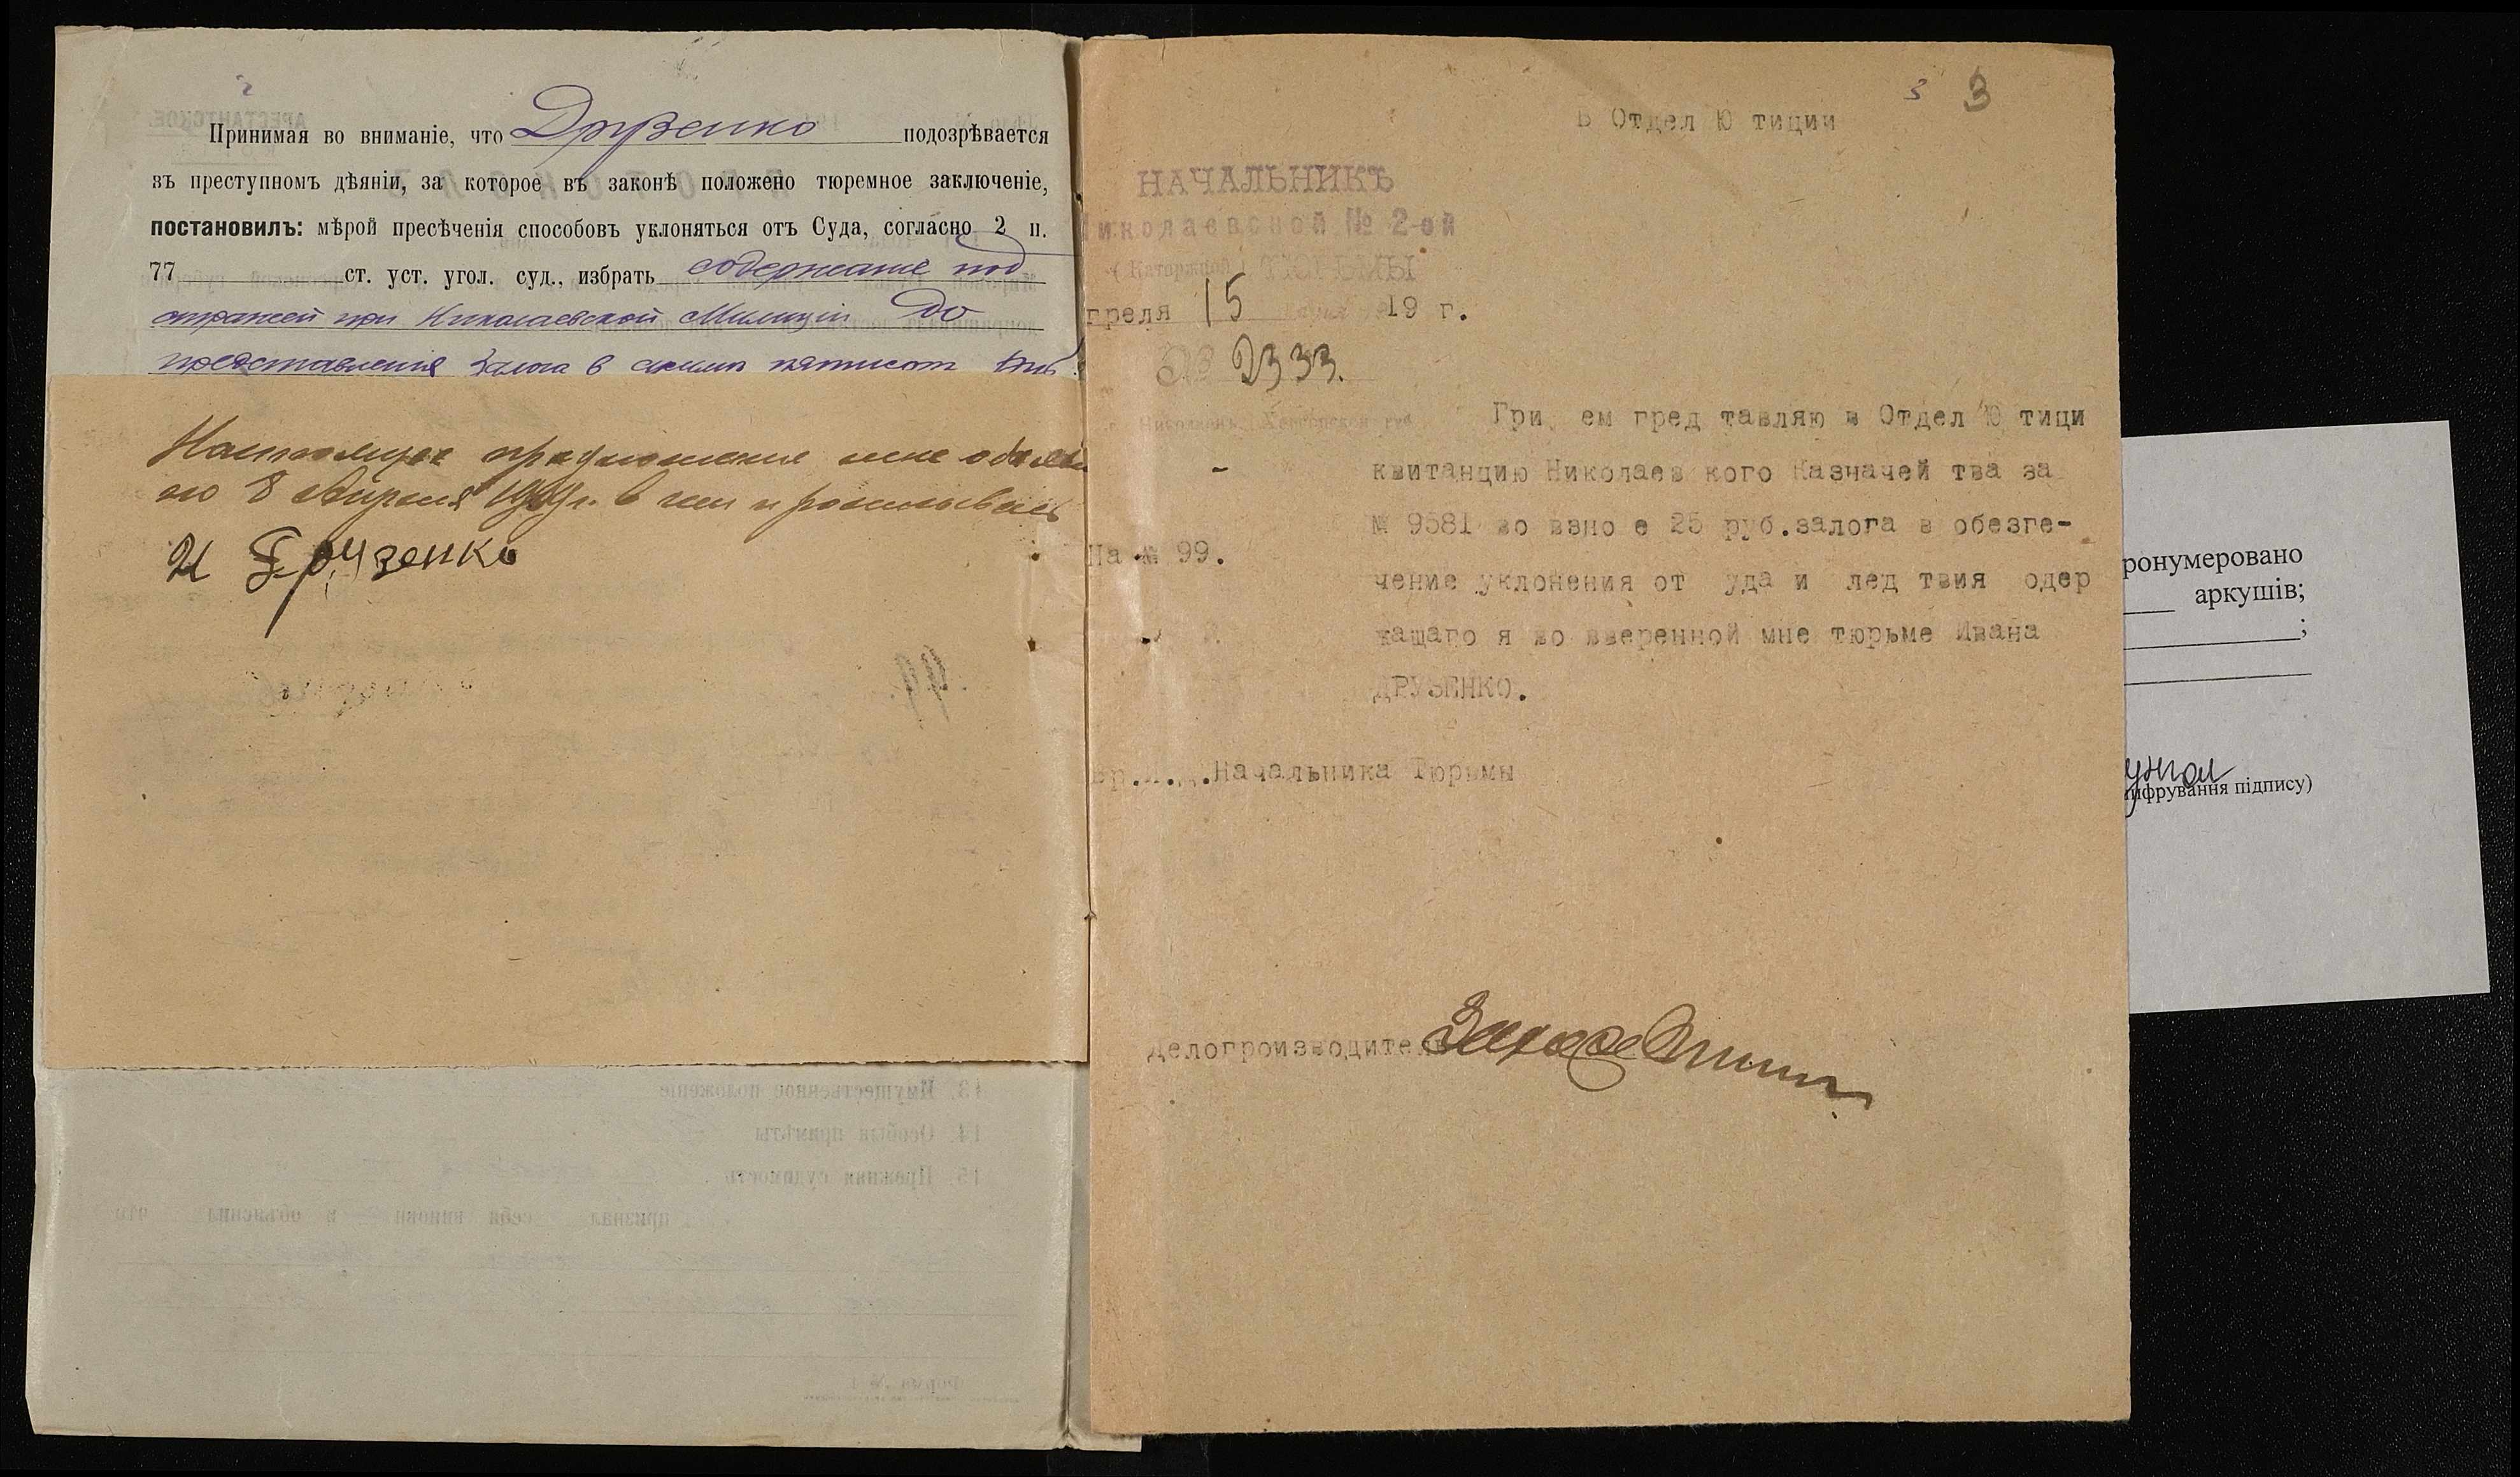 Принимая во вниманіе, что Друзенко подозрѣвается
въ преступномъ дѣяніи, за которое въ законѣ положено тюремное заключеніе,
постановилъ: мѣрой пресѣченія способовъ уклоняться отъ Суда, согласно 2 п.
77 ст. уст. угол. суд., избрать содержание под
стражей при Николаевской Милиціи до
представления залога в сумме пятисот руб
Настоящее предложение мне объявле
но 8 Апреля 1919 г. в чем и росписываюсь
И Друзенко
99.
3 3
В Отдел Ю тиции
НАЧАЛЬНИКЪ
Николаевской № 2-ой
(Каторжной) ТЮРЬМЫ
преля 15 19 г.
№ 2333.
г. Николаевъ, Херсонской губ.
На № 99.
При ем пред тавляю в Отдел Ю тици
квитанцию Николаев кого Казначей тва за
№ 9581 во взно е 25 руб.залога в обезпе-
чение уклонения от уда и лед твия одер
жащаго я во вверенной мне тюрьме Ивана
ДРУЗЕНКО.
Вр.И.Д.Начальника Тюрьмы
Делопроизводитель
13. Имущественное положеніе
14. Особыя примѣты
15. Прежняя судимость
признал себя виновн и объяснил что
Форма № 1
ронумеровано
аркушів;
;
ифрування підпису)